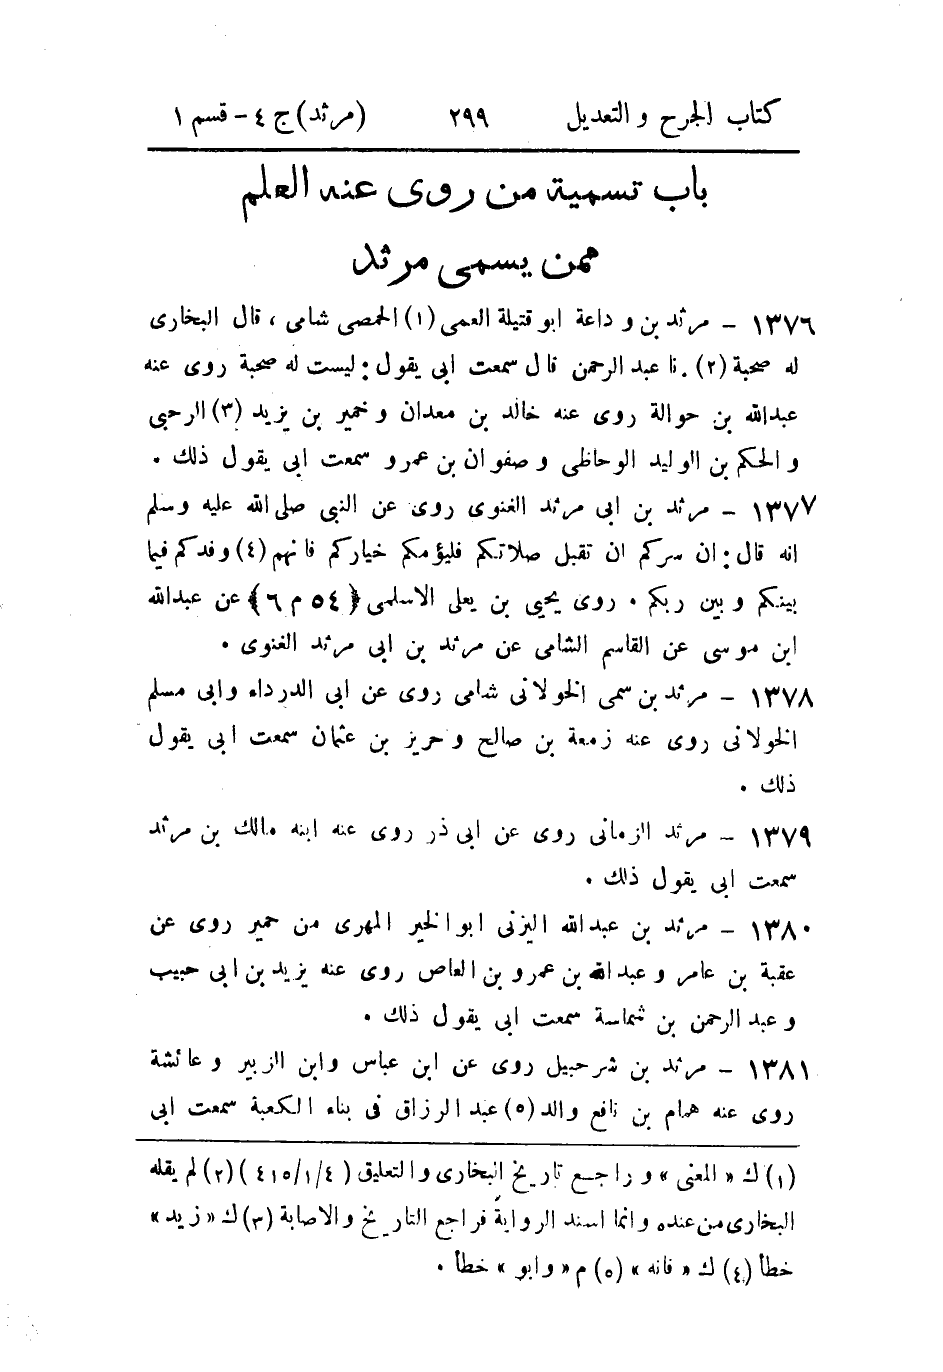 كتاب الجرح و التعديل ٢٩٩ (مرثد) ج ٤ - قسم ١
باب تسمية من روى عنه العلم
ممن يسمى مرثد
١٣٧٦ - مرثد بن و داعة ابو قتيلة العمى (١) الحمصى شامى ، قال البخارى
له صحبة (٢) . نا عبد الرحمن قال سمعت ابى يقول : ليست له صحبة روى عنه
عبدالله بن حوالة روى عنه خالد بن معدان و خمير بن يزيد (٣) الرحبى
و الحكم بن الوليد الوحاظى و صفوان بن عمرو سمعت ابى يقول ذلك .
١٣٧٧ - مرثد بن ابى مرثد الغنوى روى عن النبى صلى الله عليه وسلم
انه قال : ان سركم ان تقبل صلاتكم فليؤمكم خياركم فانهم (٤) وفدكم فيما
بينكم و بين ربكم . روى يحيى بن يعلى الاسلمى ﴿٥٤ م ٦﴾ عن عبدالله
ابن موسى عن القاسم الشامى عن مرثد بن ابى مرثد الغنوى .
١٣٧٨ - مرثد بن سمى الخولانى شامى روى عن ابى الدرداء وابى مسلم
الخولانى روى عنه زمعة بن صالح و حريز بن عثمان سمعت ابى يقول
ذلك .
١٣٧٩ - مرثد الزمانى روى عن ابى ذر روى عنه ابنه مالك بن مرثد
سمعت ابى يقول ذلك .
١٣٨٠ - مرثد بن عبدالله اليزنى ابو الخير المهرى من حمير روى عن
عقبة بن عامر و عبدالله بن عمرو بن العاص روى عنه يزيد بن ابى حبيب
و عبد الرحمن بن شماسة سمعت ابى يقول ذلك .
١٣٨١ - مرثد بن شرحبيل روى عن ابن عباس وابن الزبير و عائشة
روى عنه همام بن نافع والد (٥) عبد الرزاق فى بناء الكعبة سمعت ابى
(١) ك « المعنى » و راجع تاريخ البخارى و التعليق (٤/١/٤١٥) (٢) لم يقله
البخارى من عنده وانما اسند الرواية فراجع التاريخ والاصابة (٣) ك « زيد »
خطأ (٤) ك « فانه » (٥) م « وابو » خطأ .